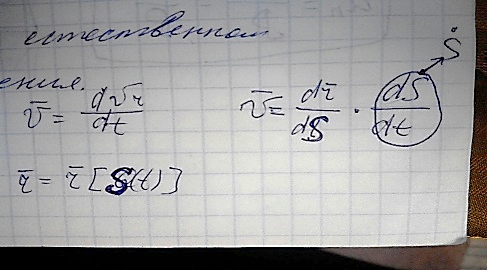 естественном
ения.
v̅ = d√r/dt
v̅ = dr̅/dS · dS/dt
Ṡ
r̅ = r̅ [S(t)]